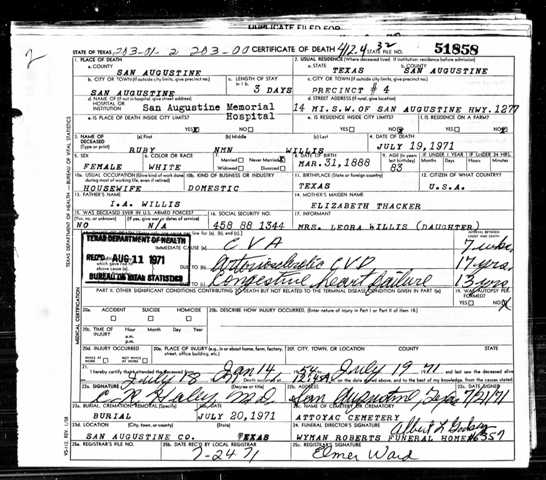 DUPLICATE FILED FOR
2
STATE OF TEXAS 203-01-2 203-00 CERTIFICATE OF DEATH 412.4 STATE FILE NO. 51858
1. PLACE OF DEATH 2. USUAL RESIDENCE (Where deceased lived. If institution: residence before admission)
a. COUNTY a. STATE b. COUNTY
SAN AUGUSTINE TEXAS SAN AUGUSTINE
b. CITY OR TOWN (If outside city limits, give precinct no.) c. LENGTH OF STAY c. CITY OR TOWN (If outside city limits, give precinct no.)
SAN AUGUSTINE 3 DAYS PRECINCT # 4
d. NAME OF (If not in hospital, give street address) HOSPITAL OR INSTITUTION d. STREET ADDRESS (If rural, give location)
San Augustine Memorial Hospital 14 MI.S.W.OF SAN AUGUSTINE HWY. 1277
e. IS PLACE OF DEATH INSIDE CITY LIMITS? e. IS RESIDENCE INSIDE CITY LIMITS? f. IS RESIDENCE ON A FARM?
YES NO YES NO YES NO
3. NAME OF DECEASED (Type or print) (a) First (b) Middle (c) Last 4. DATE OF DEATH
RUBY NMN WILLIS JULY 19,1971
5. SEX 6. COLOR OR RACE 7. Married Never Married Widowed Divorced 8. DATE OF BIRTH 9. AGE (In years last birthday) IF UNDER 1 YEAR Months Days IF UNDER 24 HRS. Hours Min.
FEMALE WHITE MAR.31,1888 83
10a. USUAL OCCUPATION (Give kind of work done during most of working life, even if retired) 10b. KIND OF BUSINESS OR INDUSTRY 11. BIRTHPLACE (State or foreign country) 12. CITIZEN OF WHAT COUNTRY?
HOUSEWIFE DOMESTIC TEXAS U.S.A.
13. FATHER'S NAME 14. MOTHER'S MAIDEN NAME
I.A. WILLIS ELIZABETH THACKER
15. WAS DECEASED EVER IN U.S. ARMED FORCES? 16. SOCIAL SECURITY NO. 17. INFORMANT
(Yes, no, or unknown) (If yes, give war or dates of service)
NO N/A 458 88 1344 MRS. LEORA WILLIS (DAUGHTER)
TEXAS DEPARTMENT OF HEALTH
REC'D AUG 11 1971
BUREAU OF VITAL STATISTICS
IMMEDIATE CAUSE (a) CVA INTERVAL BETWEEN ONSET AND DEATH
DUE TO (b) Arteriosclerotic CVD 17 yrs.
DUE TO (c) Congestive heart failure 13 yrs
PART II. OTHER SIGNIFICANT CONDITIONS CONTRIBUTING TO DEATH BUT NOT RELATED TO THE TERMINAL DISEASE CONDITION GIVEN IN PART I(a) 19. WAS AUTOPSY PERFORMED?
YES NO
20a. ACCIDENT SUICIDE HOMICIDE 20b. DESCRIBE HOW INJURY OCCURRED. (Enter nature of injury in Part I or Part II of item 18)
20c. TIME OF INJURY Hour Month Day Year
a.m.
p.m.
20d. INJURY OCCURRED 20e. PLACE OF INJURY (e.g., in or about home, farm, factory, street, office building, etc.) 20f. CITY, TOWN, OR LOCATION COUNTY STATE
WHILE AT WORK NOT WHILE AT WORK
21. I hereby certify that I attended the deceased Jan 14 54 July 19 71 and last saw the deceased alive
July 18 71 Death occurred 12:45 on the date stated above, and to the best of my knowledge, from the causes stated
22a. SIGNATURE (Degree or title) 22b. ADDRESS 22c. DATE SIGNED
C R Haley M.D. San Augustine, Texas 7/21/71
23a. BURIAL, CREMATION, REMOVAL (Specify) 23b. DATE 23c. NAME OF CEMETERY OR CREMATORY
BURIAL JULY 20,1971 ATTOYAC CEMETERY
23d. LOCATION (City, town, or county) (State) 24. FUNERAL DIRECTOR'S SIGNATURE
SAN AUGUSTINE CO. TEXAS WYMAN ROBERTS FUNERAL HOME #6357
25a. REGISTRAR'S FILE NO. 25b. DATE REC'D BY LOCAL REGISTRAR 25c. REGISTRAR'S SIGNATURE
7-24-71 Elmer Ward
TEXAS DEPARTMENT OF HEALTH — BUREAU OF VITAL STATISTICS
MEDICAL CERTIFICATION
VS-112 REV. 1/58